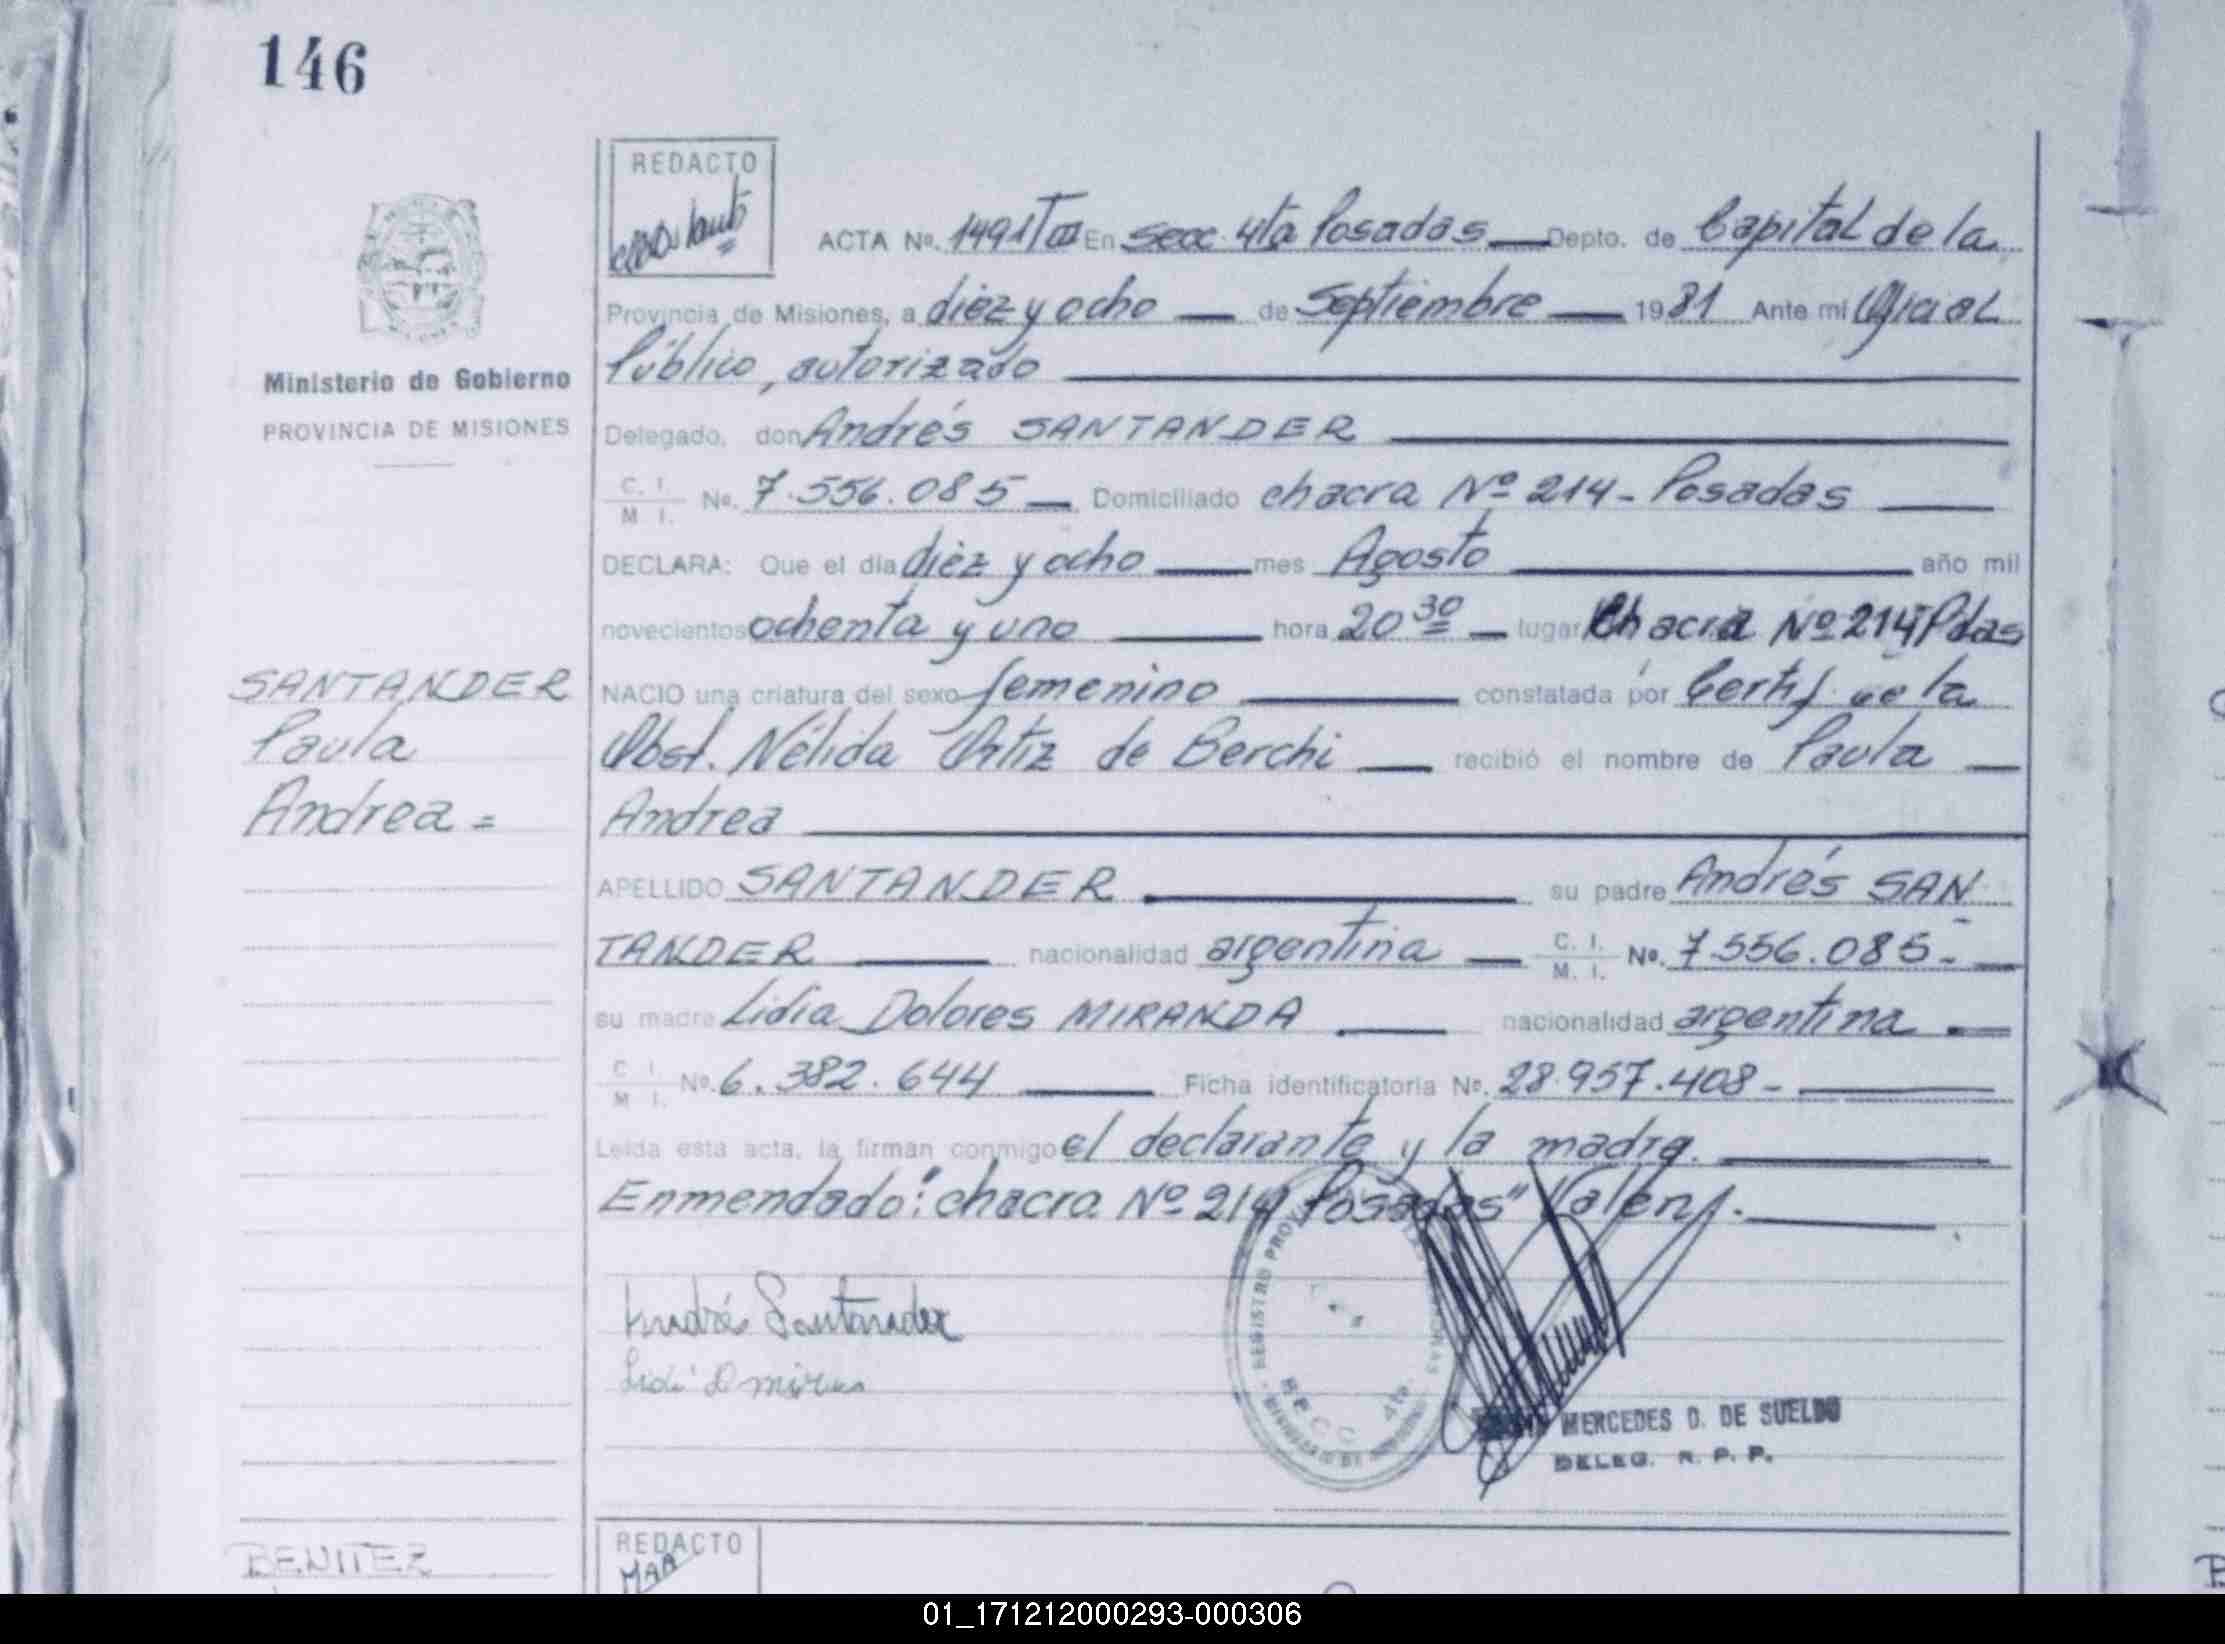 146
REDACTO
ACTA Nº. 1491 En Secc. 4ta Posadas Depto. de Capital de la
Provincia de Misiones, a diez y ocho de Septiembre 1981 Ante mi Oficial
Ministerio de Gobierno
Público, autorizado
PROVINCIA DE MISIONES
Delegado, don Andrés SANTANDER
C. I.
M. I. No. 7.556.085 Domiciliado chacra Nº 214 - Posadas
DECLARA: Que el día diez y ocho mes Agosto año mil
novecientos ochenta y uno hora 20 30 lugar Chacra Nº 214 Pdas
NACIO una criatura del sexo femenino constatada por Certif. de la
Obst. Nélida Ortiz de Berchi recibió el nombre de Paula
Andrea
SANTANDER
Paula
Andrea =
APELLIDO SANTANDER su padre Andrés SAN-
TANDER nacionalidad argentina C. I. M. I. No. 7.556.085.-
su madre Lidia Dolores MIRANDA nacionalidad argentina
C. I.
M. I. No. 6.382.644 Ficha identificatoria No. 28.957.408 -
Leída esta acta, la firman conmigo el declarante y la madre.
Enmendado: "chacra Nº 214 Posadas" Valen.
Andrés Santander
REGISTRO
4ta.
MERCEDES D. DE SUELDO
DELEG. R. P. P.
BENITEZ
REDACTO
MAA
01_171212000293-000306